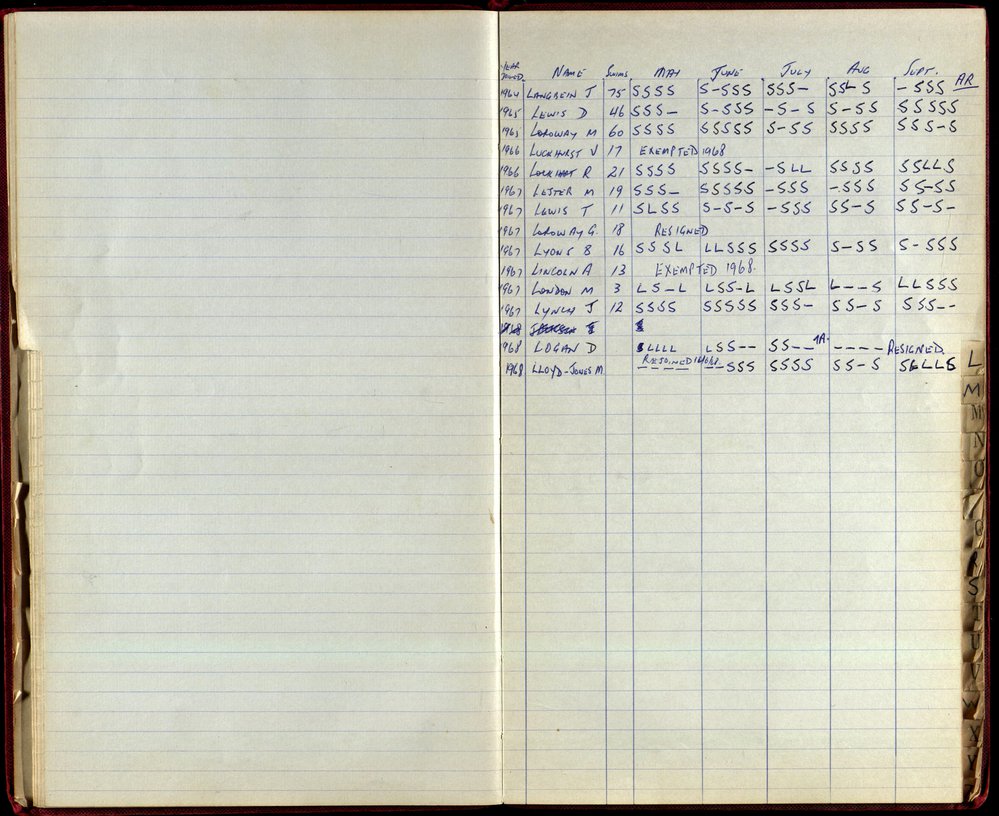 YEAR JOINED NAME SWIMS MAY JUNE JULY AUG SEPT. AR
1964 LANGBEIN J 75 SSSS S-SSS SSS- SSL S -SSS
1965 LEWIS D 46 SSS- S-SSS -S-S S-SS SSSSS
1965 LOROWAY M 60 SSSS SSSSS S-SS SSSS SSS-S
1966 LUCKHURST V 17 EXEMPTED 1968
1966 LOCKHART R 21 SSSS SSSS- -SLL SSSS SSLLS
1967 LESTER M 19 SSS- SSSSS -SSS -SSS SS-SS
1967 LEWIS T 11 SLSS S-S-S -SSS SS-S SS-S-
1967 LOROWAY G. 18 RESIGNED
1967 LYONS B 16 SSSL LLSSS SSSS S-SS S-SSS
1967 LINCOLN A 13 EXEMPTED 1968.
1967 LONDON M 3 LS-L LSS-L LSSL L---S LLSSS
1967 LYNCH J 12 SSSS SSSSS SSS- SS-S SSS--
1968
1968 LOGAN D LLLL LSS-- SS-- 1A. ---- RESIGNED.
1968 LLOYD-JONES M. ---- --SSS SSSS SS-S SLLLS
L
M
M
N
O
Q
R
S
T
U
V
W
X
Y